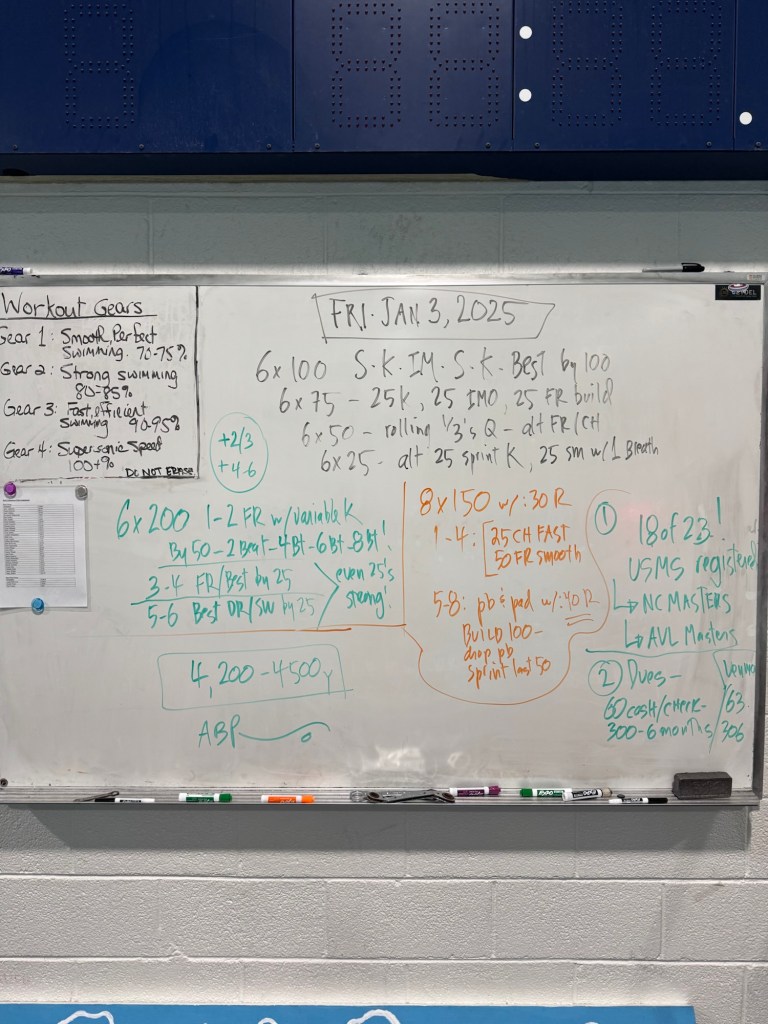 Workout Gears
Gear 1: Smooth, Perfect
Swimming. 70-75%
Gear 2: Strong swimming
80-85%
Gear 3: Fast, efficient
Swimming 90-95%
Gear 4: Supersonic Speed
100+%
DO NOT ERASE
FRI. JAN 3, 2025
6x100 S·K·IM·S·K·Best by 100
6x75 - 25K, 25 IMO, 25 FR build
6x50 - rolling 1/3's Q - alt FR/CH
6x25 - alt 25 sprint K, 25 sm w/ 1 Breath
+2/3
+4-6
6x200 1-2 FR w/ variable K
By 50 - 2 Beat - 4Bt - 6Bt - 8Bt!
3-4 FR/Best by 25
5-6 Best DR/SW by 25
even 25's
strong!
4,200-4500y
ABP
8x150 w/ :30 R
1-4: 25 CH FAST
50 FR smooth
5-8: pb & pad w/ :40 R
Build 100-
drop pb
Sprint last 50
① 18 of 23!
USMS registered
↳ NC MASTERS
↳ AVL Masters
② Dues -
60 cash/check-
300-6 months
Venmo
63.
306